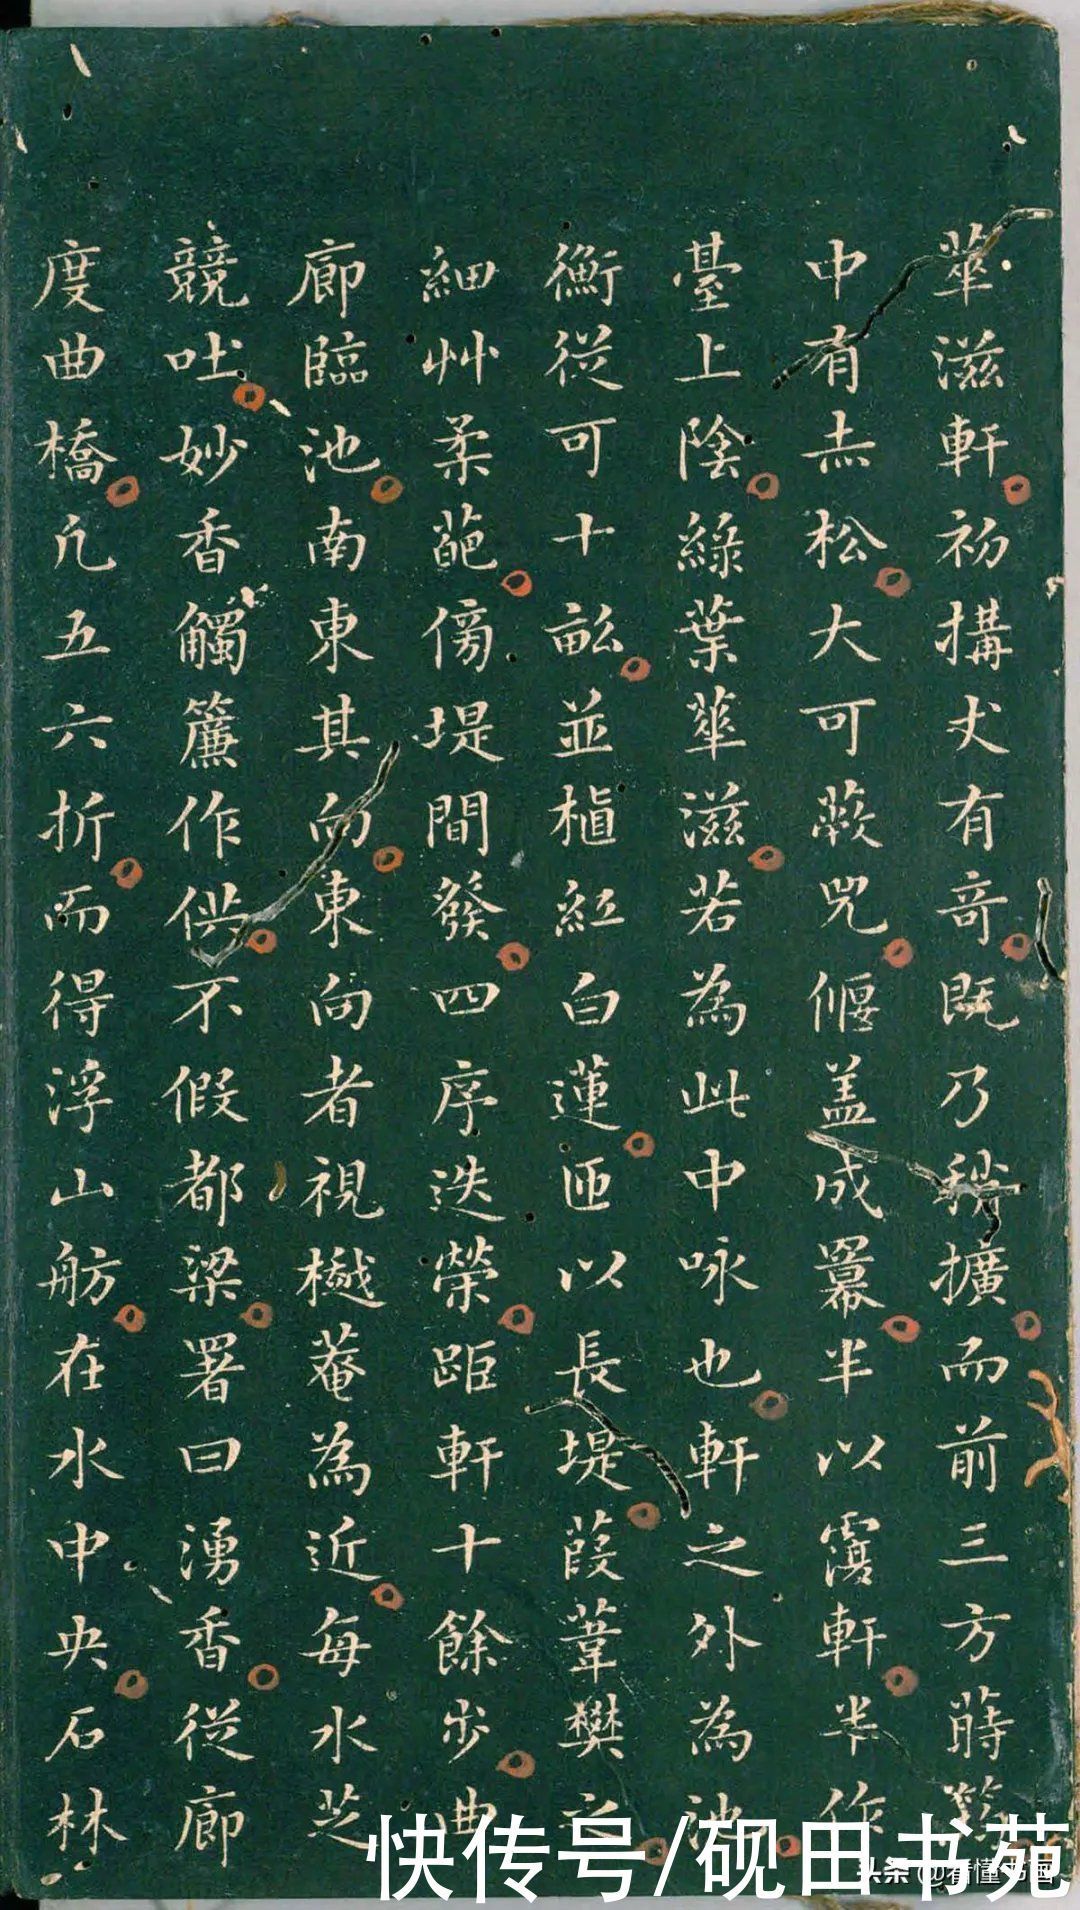 華滋軒初搆丈有奇既乃稍擴而前三方蒔筠
中有赤松大可蔽兕偃盖成冪半以覆軒半作
臺上陰綠葉華滋若為此中咏也軒之外為池
衡從可十畝並植紅白蓮匝以長堤葭葦樊之
細艸柔葩傍堤間發四序迭榮距軒十餘步曲
廊臨池南東其向東向者視樾菴為近每水芝
競吐妙香觸簾作供不假都梁署曰湧香從廊
度曲橋凢五六折而得浮山舫在水中央石林
快传号/砚田书苑
头条@看懂书画